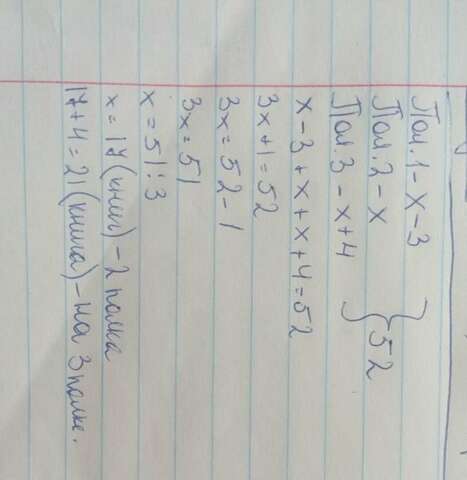 Пол. 1 - x - 3
Пол. 2 - x } 52
Пол. 3 - x + 4
x - 3 + x + x + 4 = 52
3x + 1 = 52
3x = 52 - 1
3x = 51
x = 51 : 3
x = 17 (книг) - 2 полка
17 + 4 = 21 (книга) - на 3 полке.